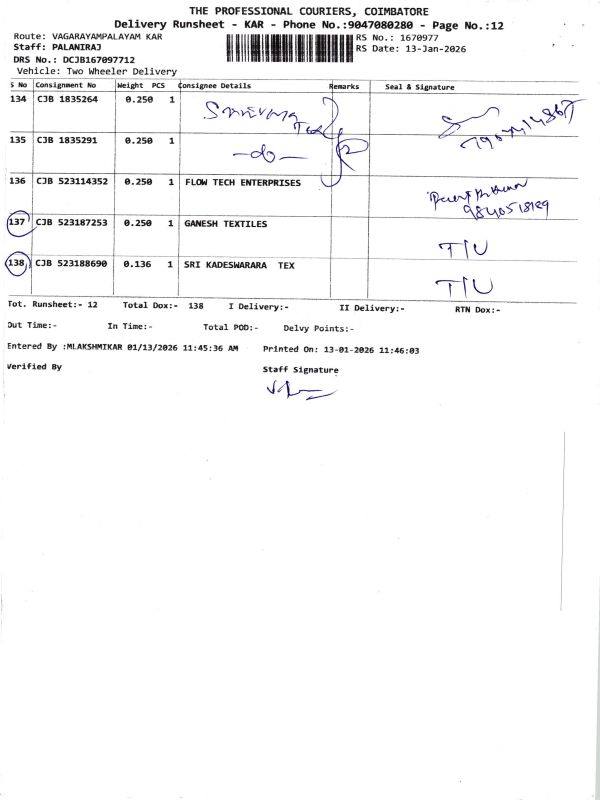 THE PROFESSIONAL COURIERS, COIMBATORE
Delivery Runsheet - KAR - Phone No.:9047080280 - Page No.:12
Route: VAGARAYAMPALAYAM KAR
RS No.: 1670977
Staff: PALANIRAJ
RS Date: 13-Jan-2026
DRS No.: DCJB167097712
Vehicle: Two Wheeler Delivery
S No Consignment No Weight PCS Consignee Details Remarks Seal & Signature
134 CJB 1835264 0.250 1
135 CJB 1835291 0.250 1 -do-
136 CJB 523114352 FLOW TECH ENTERPRISES
137 CJB 523187253 0.250 1 GANESH TEXTILES T/U
138 CJB 523188690 0.136 1 SRI KADESWARARA TEX T/U
Tot. Runsheet:- 12 Total Dox:- 138 I Delivery:- II Delivery:- RTN Dox:-
Out Time:- In Time:- Total POD:- Delvy Points:-
Entered By :MLAKSHMIKAR 01/13/2026 11:45:36 AM Printed On: 13-01-2026 11:46:03
Verified By Staff Signature